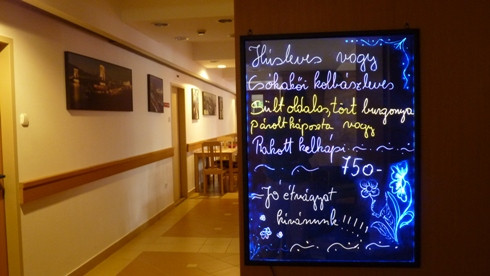 Húsleves vagy
Csókakői kolbászleves
Sült oldalas, tört burgonya
párolt káposzta vagy
Rakott kelkápi
750-
Jó étvágyat
kívánunk!!!!!